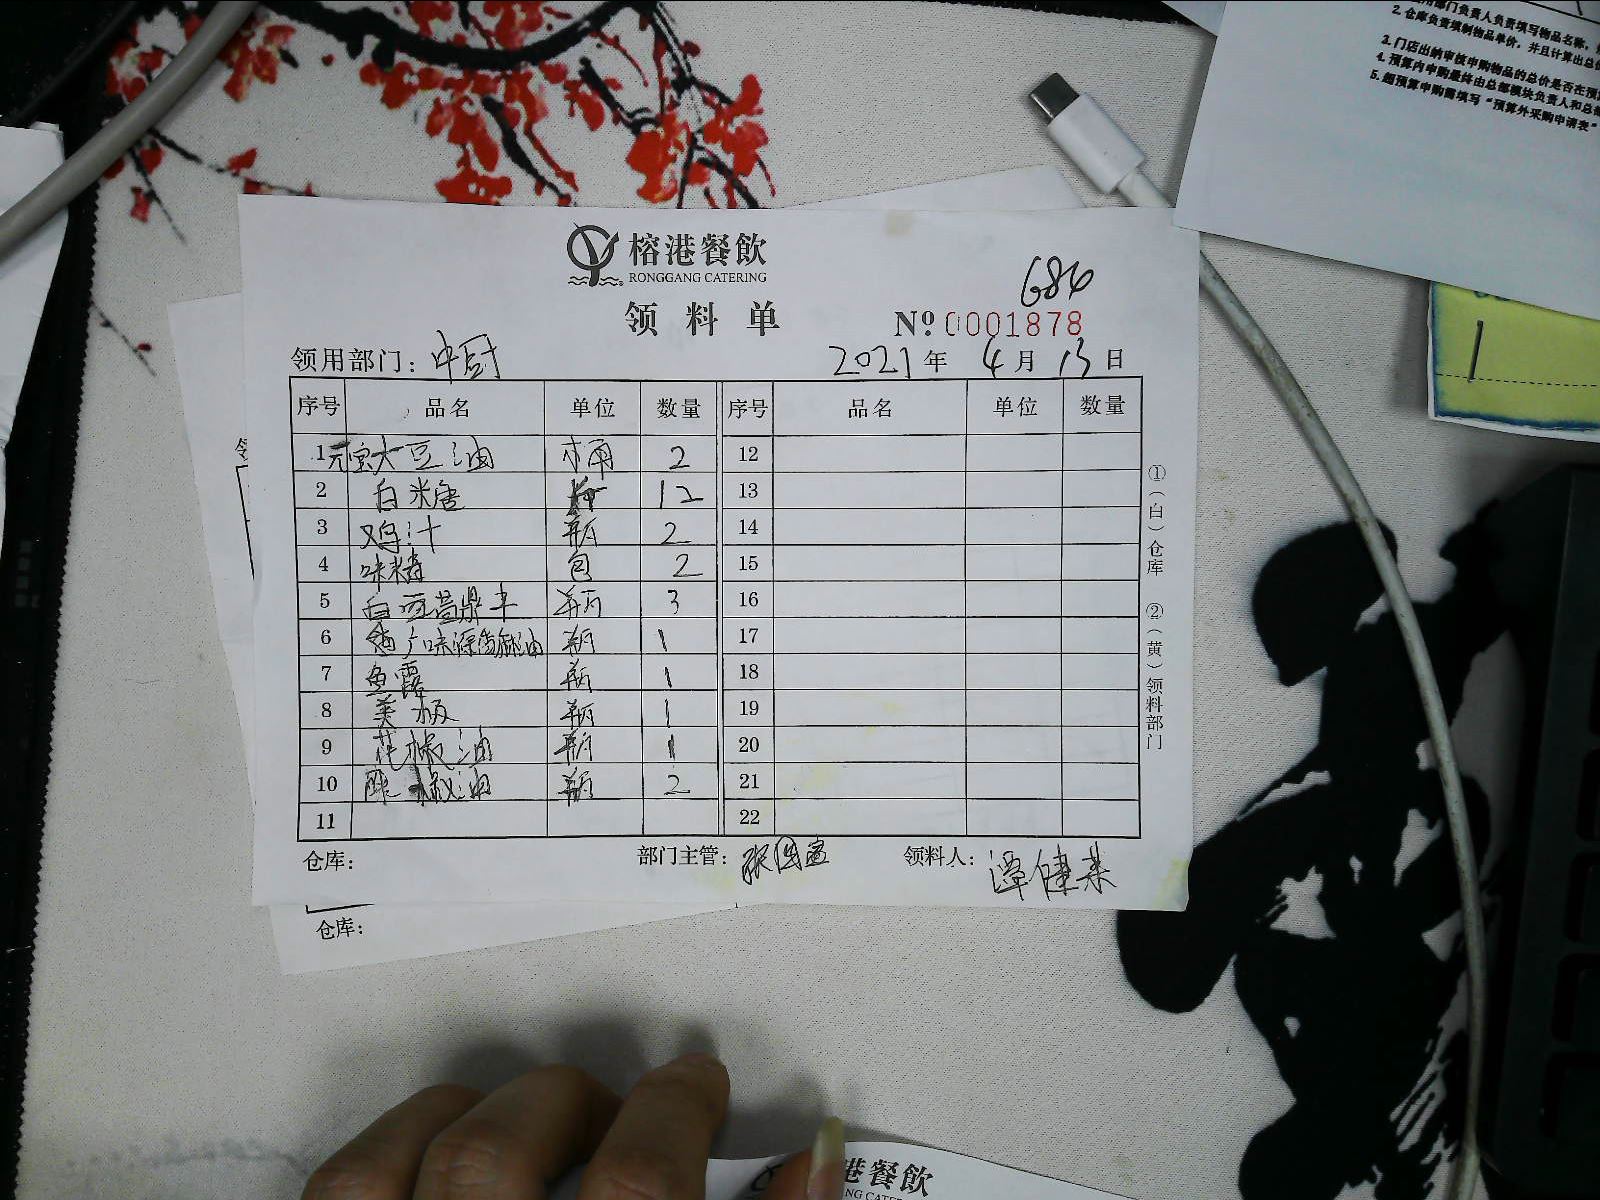 用部门负责人负责填写物品名称,
2. 仓库负责填制物品单价,并且计算出总价
3. 门店出纳审核申购物品的总价是否在预算
4. 预算内申购最终由总部模块负责人和总部
5. 超预算申购需填写“预算外采购申请表”
榕港餐飲
RONGGANG CATERING
684
领料单
№ 0001878
领用部门: 中厨
2021 年 4 月 13 日
序号 品名 单位 数量 序号 品名 单位 数量
1 元宝大豆油 桶 2 12
2 白米唐 12 13
3 鸡汁 瓶 2 14
4 味精 包 2 15
5 白 瓶 3 16
6 广味源 油 瓶 1 17
7 鱼露 瓶 1 18
8 美极 瓶 1 19
9 花椒油 瓶 1 20
10 椒油 瓶 2 21
11 22
①(白)仓库 ②(黄)领料部门
仓库: 部门主管: 张 领料人: 谭健
仓库:
港餐飲